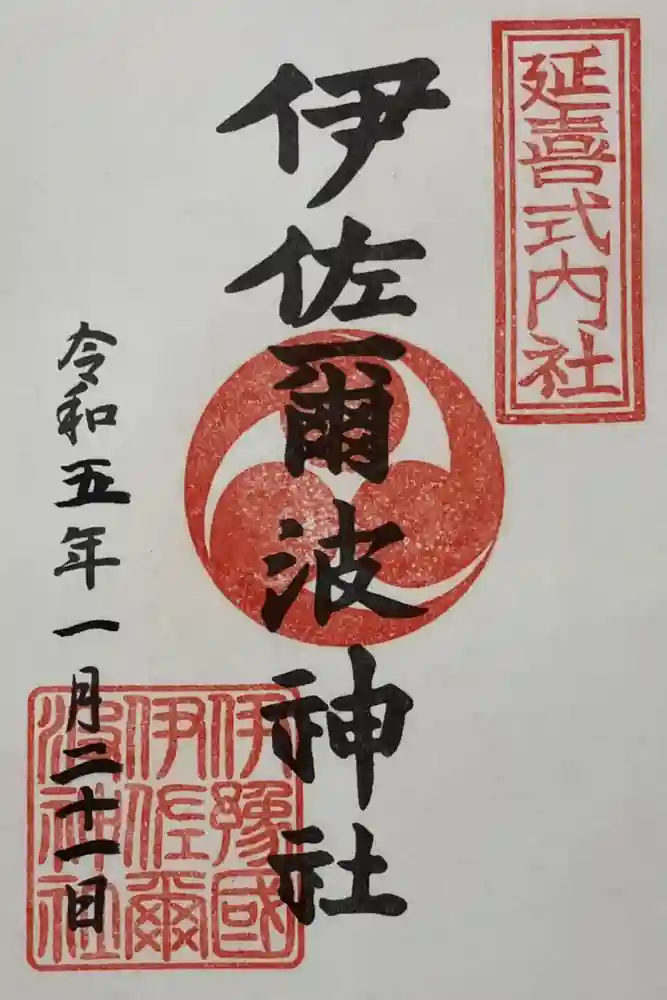 延喜式内社
伊佐爾波神社
令和五年一月二十一日
伊豫國
伊佐爾
波神社